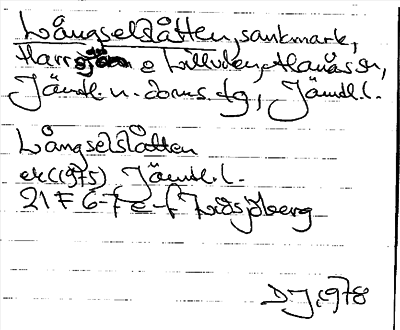 Långselslåtten, sankmark,
Harrsjön o Lillviken, Hanåsen,
Jämtl. n. doms. dg, Jämtl.l.
Långselslåtten
ek(1975) Jämtl.l.
21 F 6-7 e-f Tvåsjöberg
D J, 1978